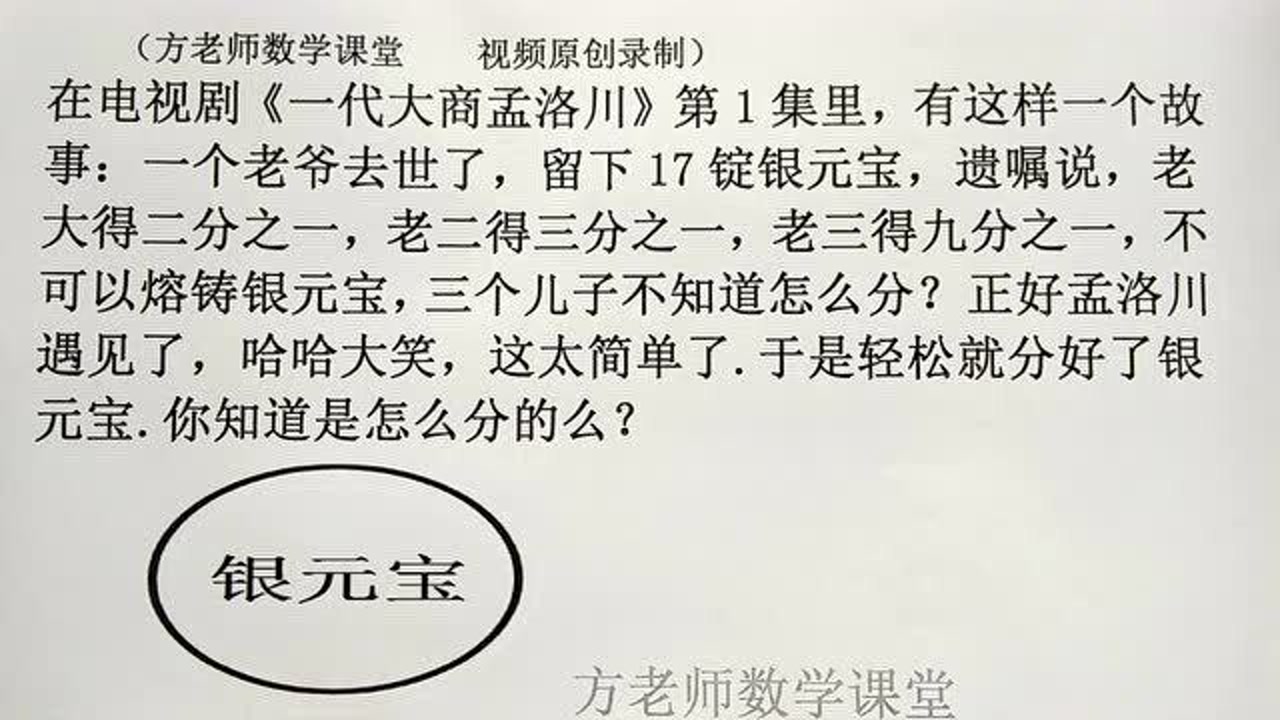 （方老师数学课堂 视频原创录制）
在电视剧《一代大商孟洛川》第 1 集里，有这样一个故
事：一个老爷去世了，留下 17 锭银元宝，遗嘱说，老
大得二分之一，老二得三分之一，老三得九分之一，不
可以熔铸银元宝，三个儿子不知道怎么分？正好孟洛川
遇见了，哈哈大笑，这太简单了.于是轻松就分好了银
元宝.你知道是怎么分的么？
银元宝
方老师数学课堂